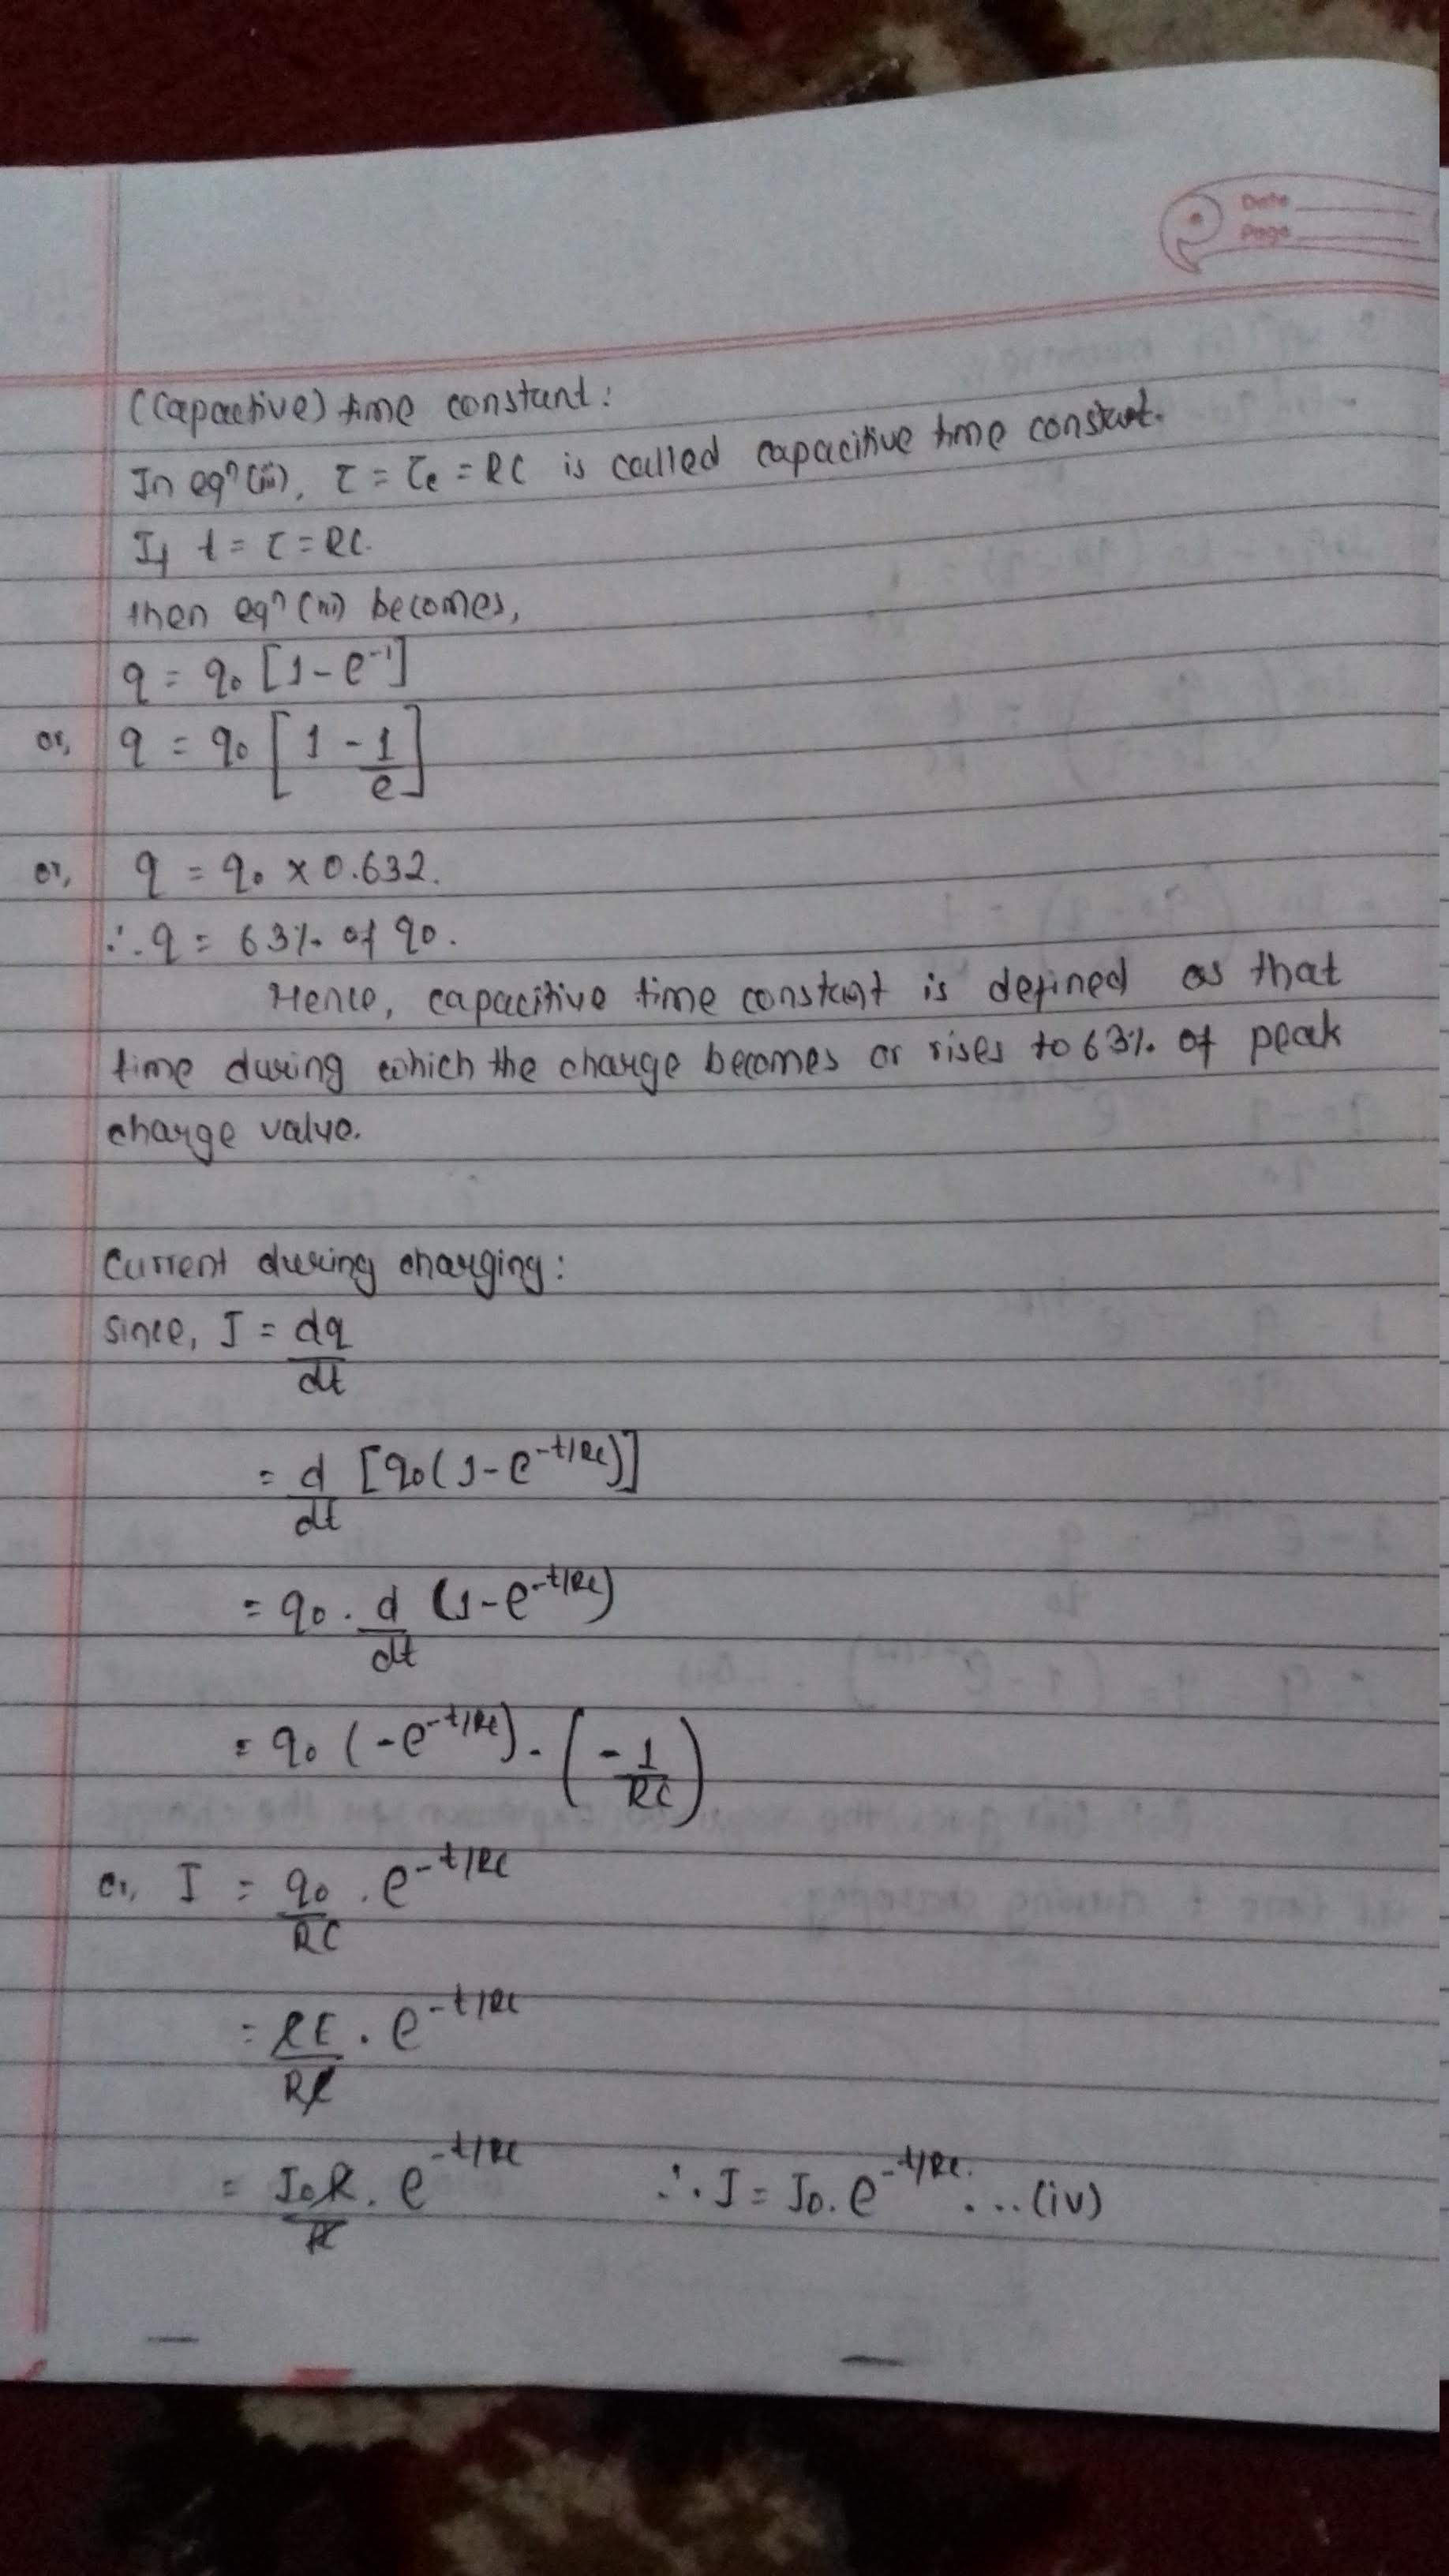 Date
Page
(Capacitive) time constant:
In eqⁿ (iii), τ = τc = RC is called capacitive time constant.
If t = τ = RC.
then eqⁿ (iii) becomes,
q = q₀ [1 - e⁻¹]
or, q = q₀ [1 - 1/e]
or, q = q₀ × 0.632.
∴ q = 63% of q₀.
Hence, capacitive time constant is defined as that
time during which the charge becomes or rises to 63% of peak
charge value.
Current during charging:
Since, I = dq/dt
= d/dt [q₀(1 - e^(-t/RC))]
= q₀ . d/dt (1 - e^(-t/RC))
= q₀ (-e^(-t/RC)) . (-1/RC)
or, I = q₀/RC . e^(-t/RC)
= CE/RC . e^(-t/RC)
= I₀R/R . e^(-t/RC) ∴ I = I₀ . e^(-t/RC). ... (iv)